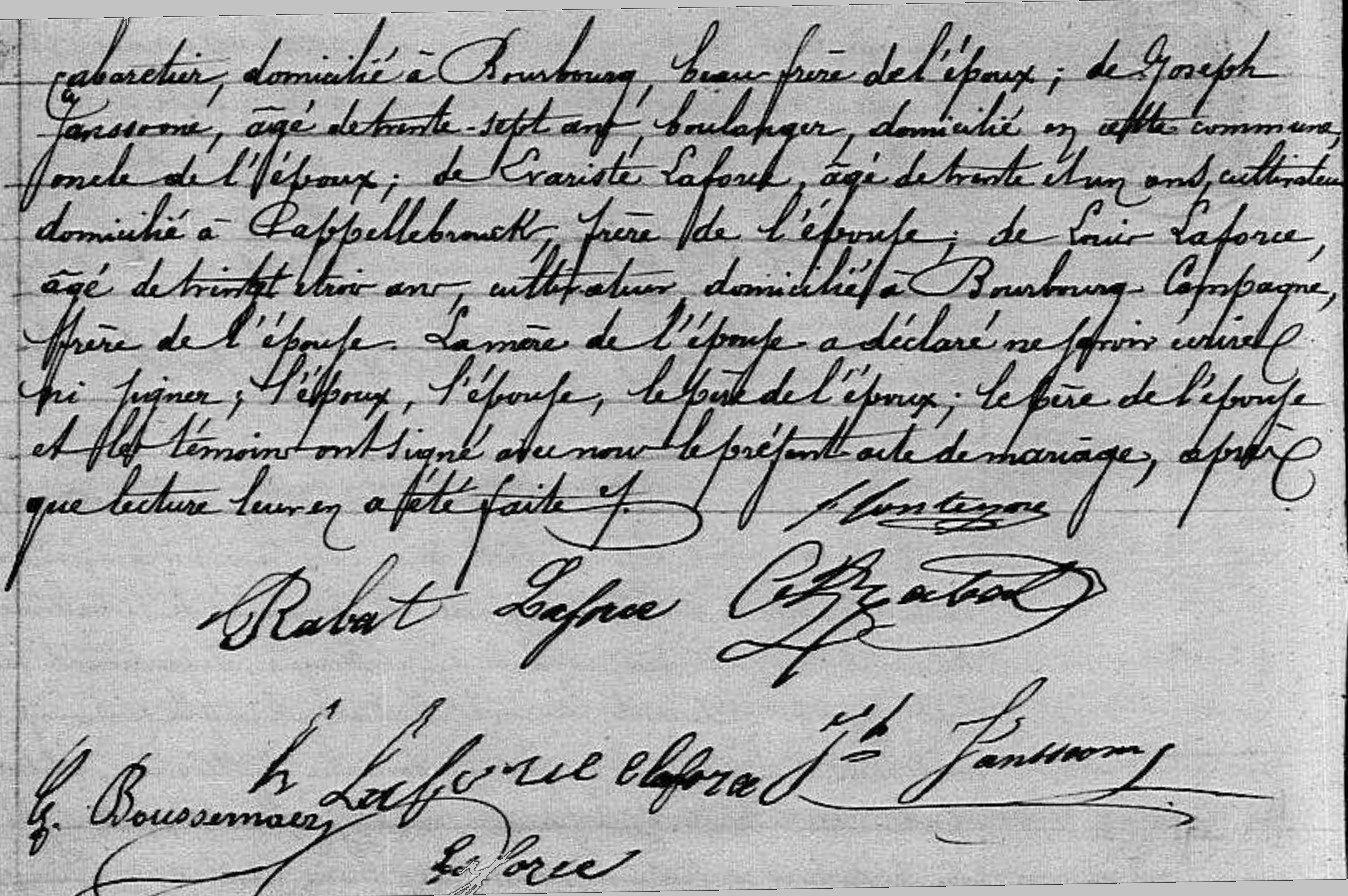 cabaretier, domicilié à Bourbourg, beau frère de l'époux; de Joseph
Janssoone, âgé de trente-sept ans, boulanger, domicilié en cette commune,
oncle de l'époux; de Evariste Laforce, âgé de trente et un ans, cultivateur
domicilié à Cappellebrouck, frère de l'épouse; de Louis Laforce,
âgé de trente trois ans, cultivateur, domicilié à Bourbourg Campagne,
frère de l'épouse. La mère de l'épouse a déclaré ne savoir écrire
ni signer; l'époux, l'épouse, le père de l'époux; le père de l'épouse
et les témoins ont signé avec nous le présent acte de mariage, après
que lecture leur en a été faite ./.
Rabat Laforce C Rabat
h Laforce e laforce Jh Janssoone
Boussemaer
Laforce